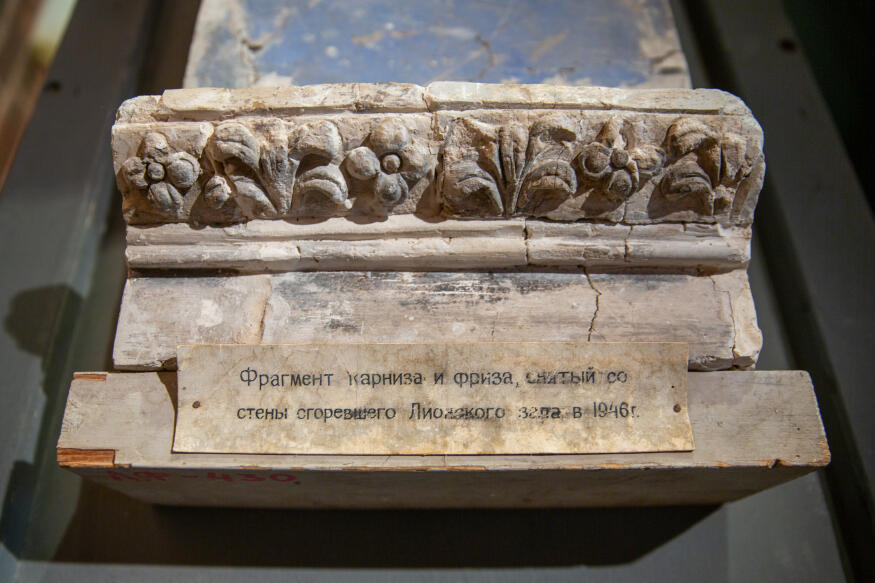 Фрагмент карниза и фриза, снятый со
стены сгоревшего Лионского зала в 1946г.
ЛФ-430